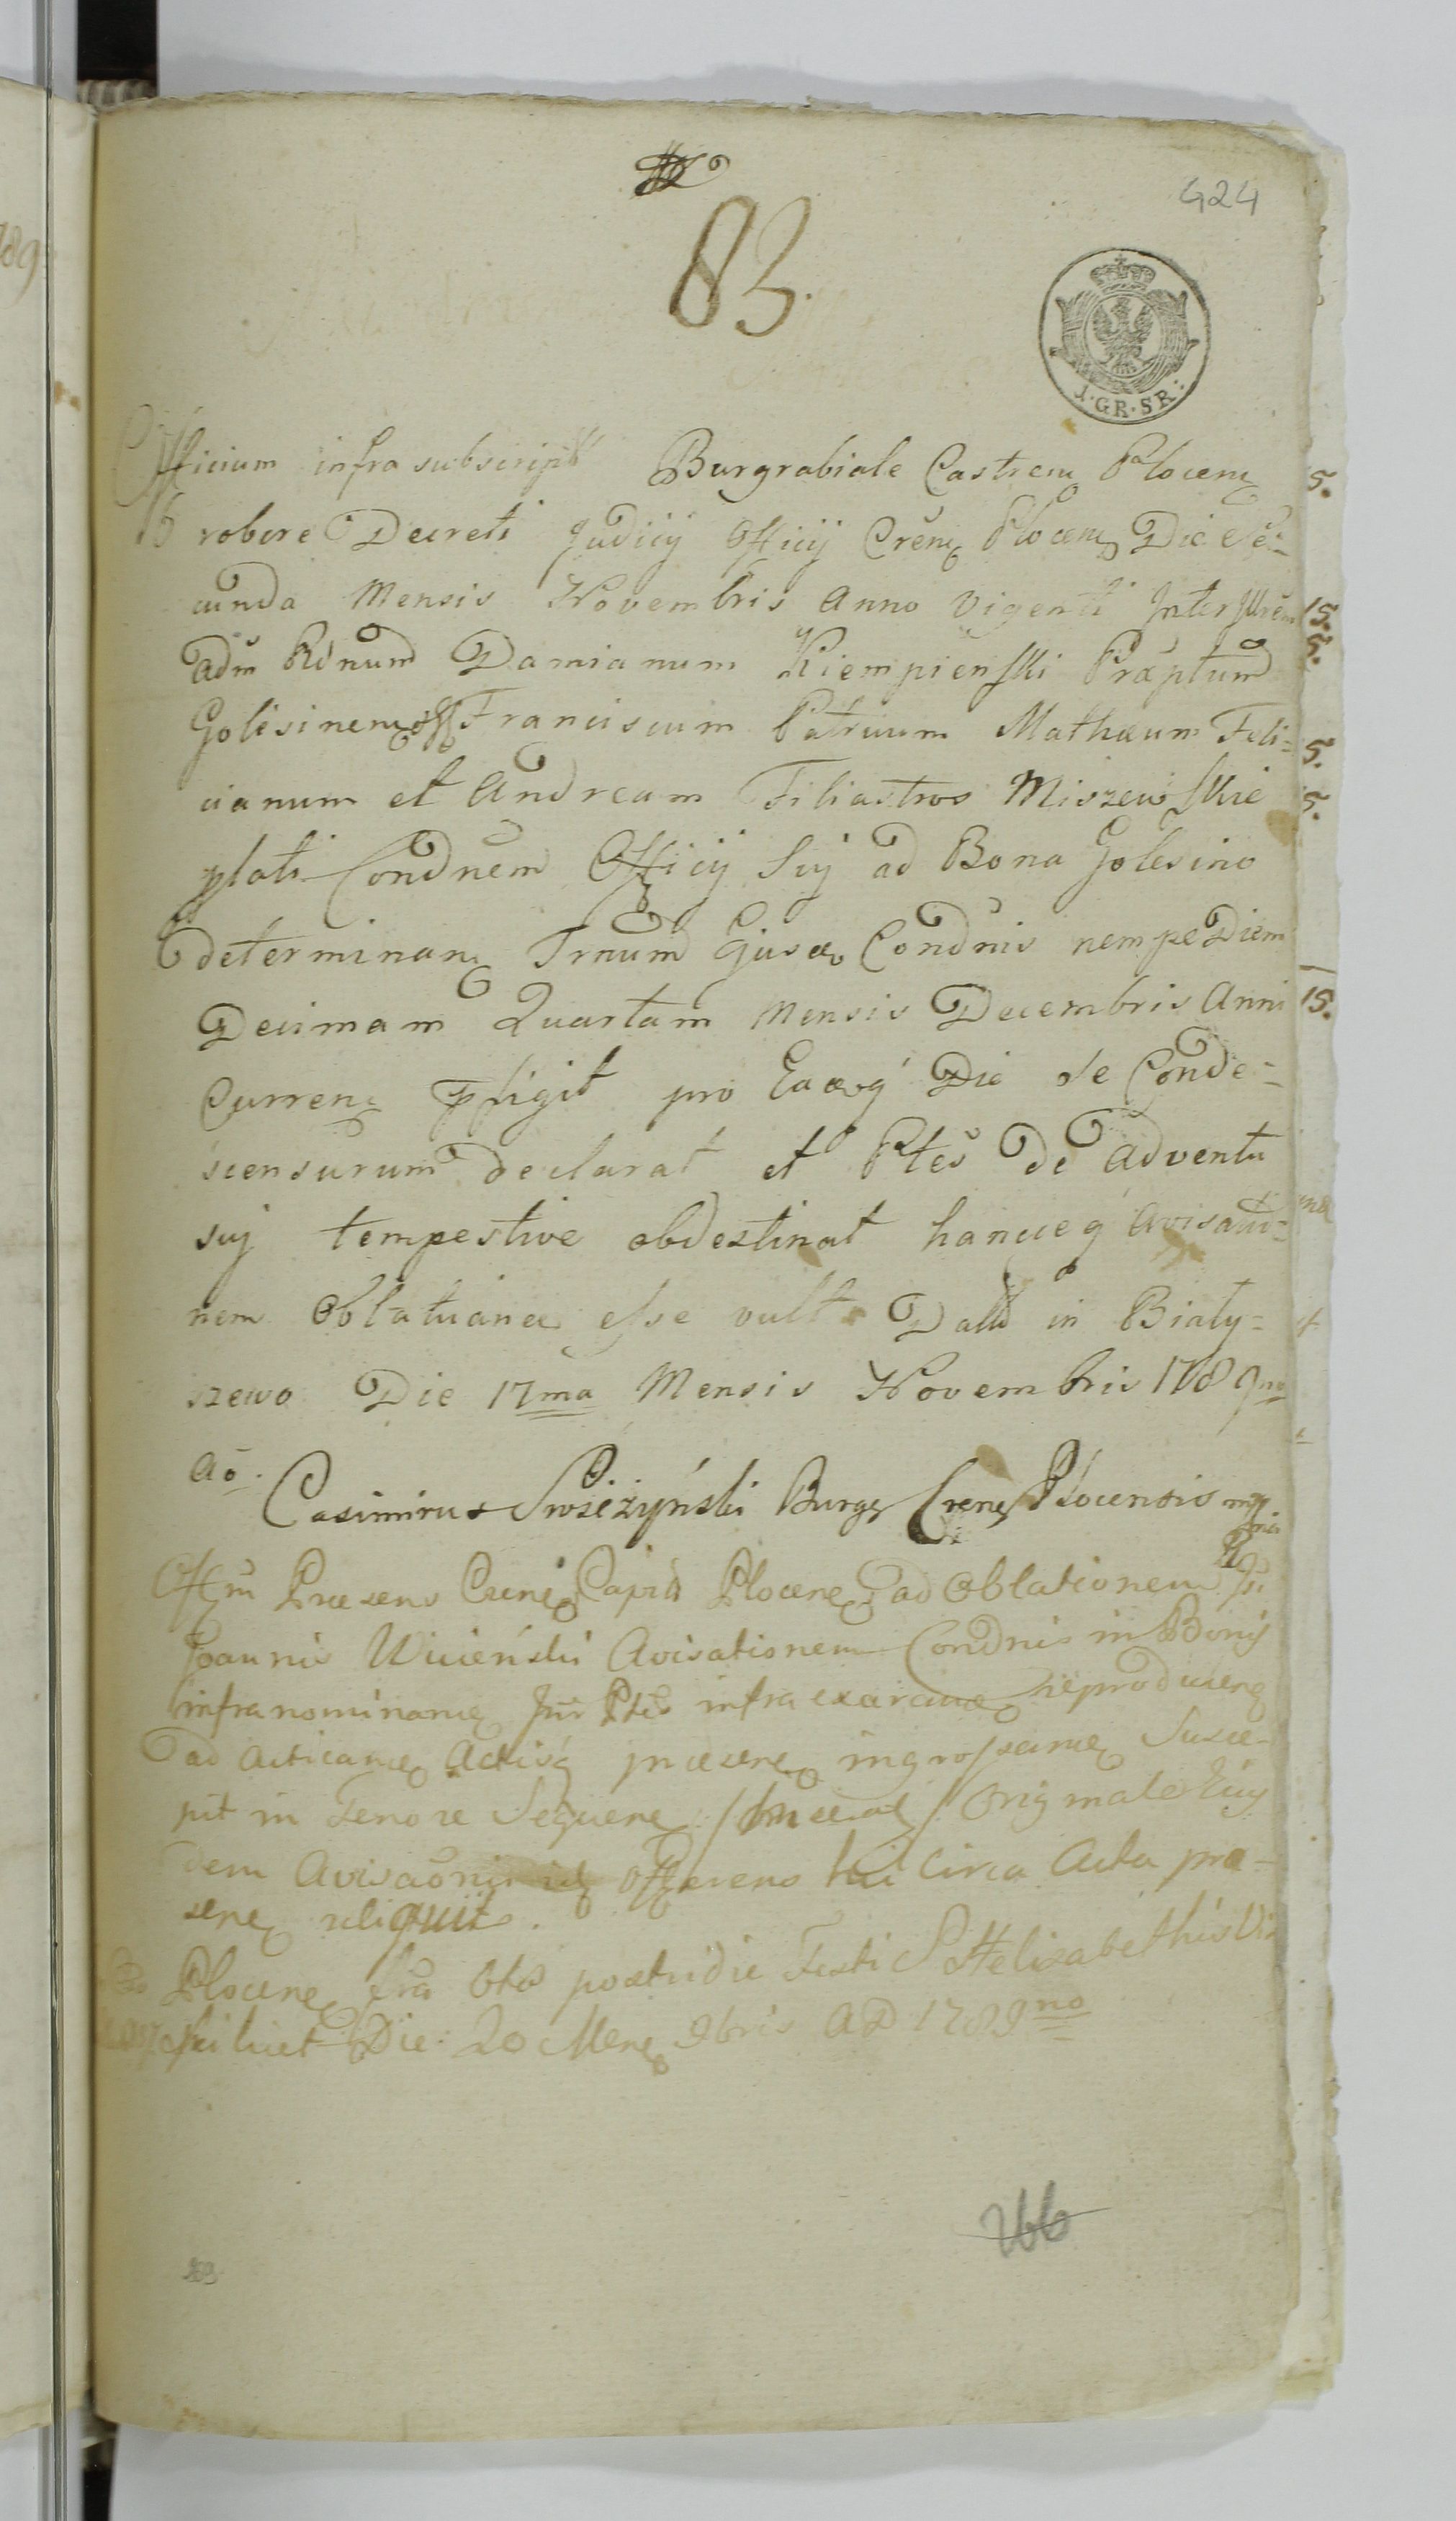 424
83.
1·GR·SR:
Officium infra subscript Burgrabiale Castren Plocen
robore Decreti Judicij Officij Cren Plocen Die Se=
cunda Mensis Novembris Anno Vigenti Inter
Adm Rdnum Damianum Kiempienski Præptum
Golesinen Franciscum Patruum Mathæum Feli=
cianum et Andream Filiastros Miszewskie
Condnem Officij Suj ad Bona Golesino
determinan Trnum Condnis nempe Diem
Decimam Quartam Mensis Decembris Anni
Curren pfigit pro Die se Conde=
scensurum declarat et Ptes de Adventu
suj tempestive obdestinat Avisatio=
nem Oblatuanda esse vult Datt in Biały=
szewo Die 17ma Mensis Novembris 1789no
Ao.
Casimirus Burg Cren Plocensis mp
Offm Præsens Cren Plocen ad Oblationem
Joannis Wicieński Avisationem Condnis in Bonis
infra nominan infra reproducen
ad Actican Actisq præsen ingrossan Susce=
pit in Tenore Sequen Originale Eius
dem Avisaonis offerens circa Acta præ=
sen reliquit.
Plocen postridie Festi S Helisabethis
scilicet Die 20 Mens 9bris AD 1789no
266